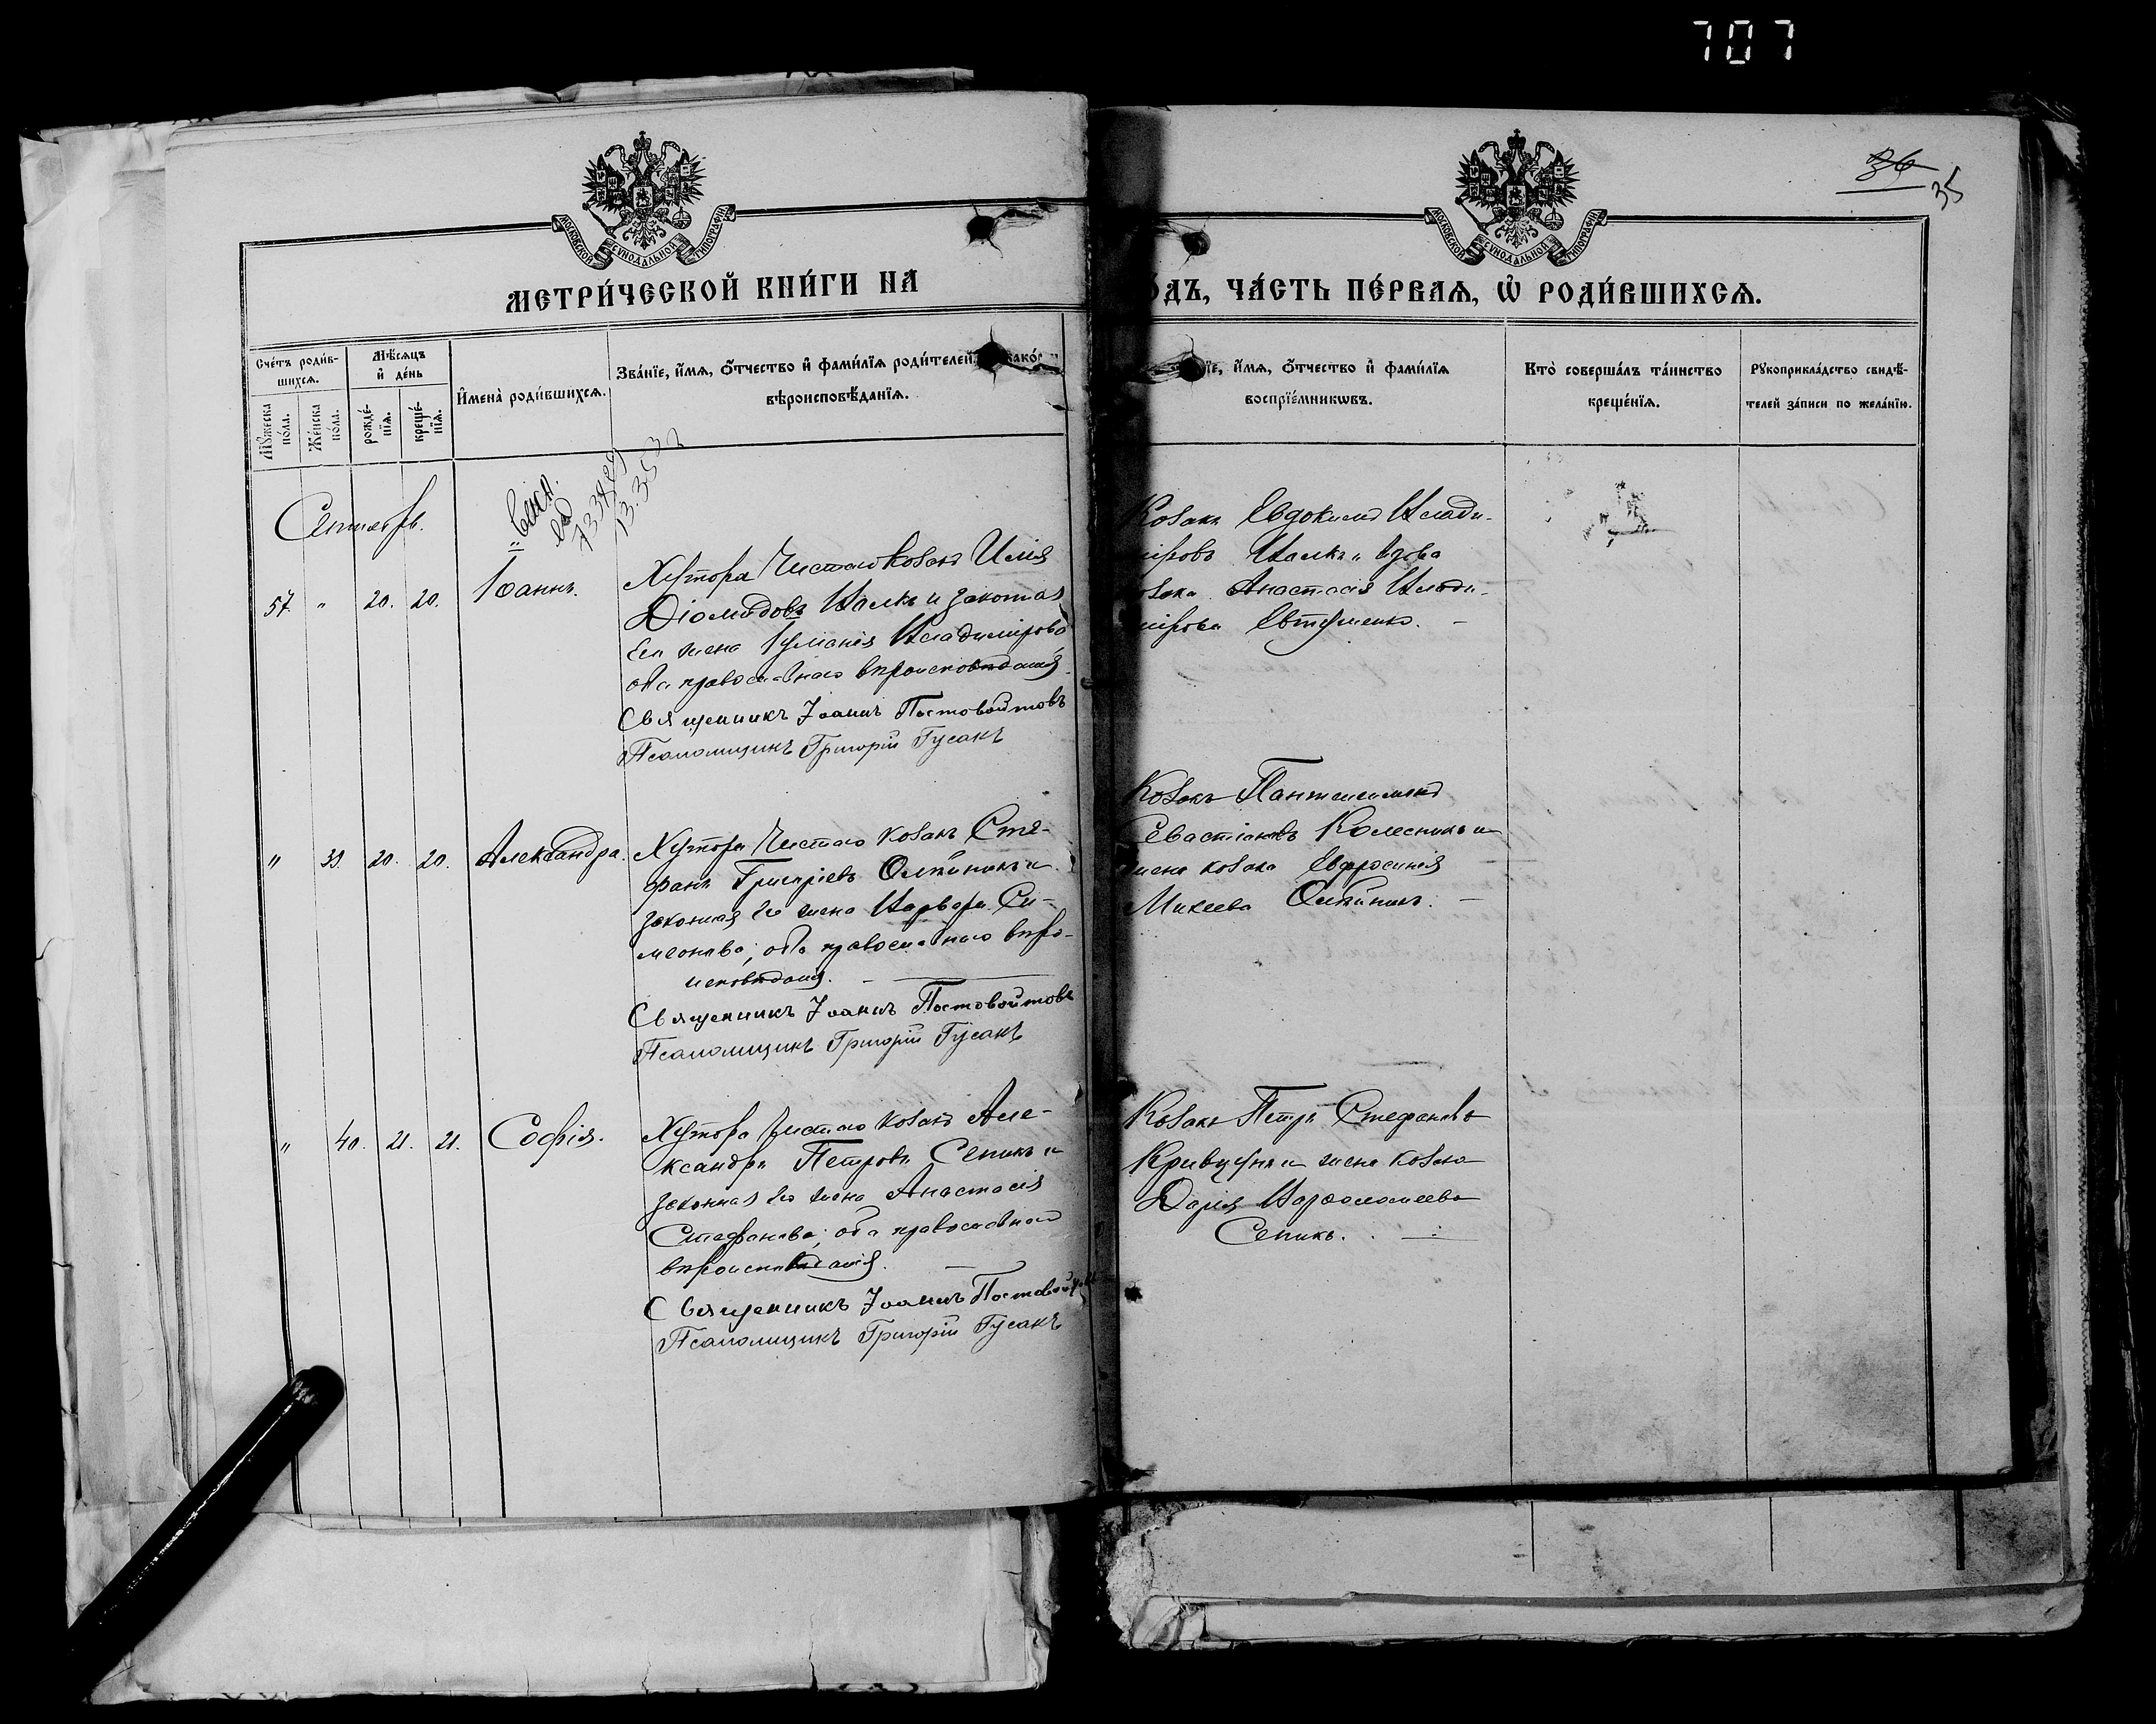 707
36
35
МОСКОВСКОЙ СУНОДАЛЬНОЙ ТИПОГРАФІИ
МОСКОВСКОЙ СУНОДАЛЬНОЙ ТИПОГРАФІИ
МЕТРИ́ЧЕСКОЙ КНИ́ГИ НА
О́ДЪ, ЧА́СТЬ ПЕ́РВАѦ, Ѡ҆ РОДИ́ВШИХСѦ.
Сче́тъ роди́в-
шихсѧ.
Мѣ́сѧцъ
и҆ де́нь
Мꙋ́жеска по́ла.
Же́нска по́ла.
рожде́-
нїѧ.
креще́-
нїѧ.
И҆мена̀ роди́вшихсѧ.
Зва́нїе, и҆́мѧ, ѻ҆́тчество и҆ фами́лїѧ роди́телей,
вѣроисповѣ́данїѧ.
їе, и҆́мѧ, ѻ҆́тчество и҆ фами́лїѧ
воспрїе́мникѡвъ.
Кто̀ соверша́лъ та́инство
креще́нїѧ.
Рꙋкоприкла́дство свидѣ́-
телей за́писи по жела́нїю.
Сентябрь.
57 " 20. 20. Іоаннъ.
Хутора Чистаго козакъ Илія
Діомидовъ Цалкъ и законная
его жена Іуліанія Владимірова
оба православнаго вѣроисповѣданія.
Священникъ Іоаннъ Постовойтовъ
Псаломщикъ Григорій Гусакъ
Козакъ Евдокимъ Влади-
міровъ вдова
козака Анастасія Влади-
мірова Евтушенко. -
" 39. 20. 20. Александра.
Хутора Чистаго козакъ Сте-
фанъ Григоріевъ Олѣйникъ и
законная его жена Варвара Си-
меонова; оба православнаго вѣро-
исповѣданія. -
Священникъ Іоаннъ Постовойтовъ
Псаломщикъ Григорій Гусакъ
Козакъ Пантелеимонъ
Севастіановъ Колесникъ и
жена козака Евфросинія
Михеева Олѣйникъ. -
" 40. 21. 21. Софія.
Хутора Чистаго козакъ Але-
ксандръ Петровъ Сепикъ и
законная его жена Анастасія
Стефанова; оба православнаго
вѣроисповѣданія. -
Священникъ Іоаннъ Постовойтовъ
Псаломщикъ Григорій Гусакъ
Козакъ Петръ Стефановъ
Кривцунъ и жена козака
Дарія Варфоломеева
Сепикъ.